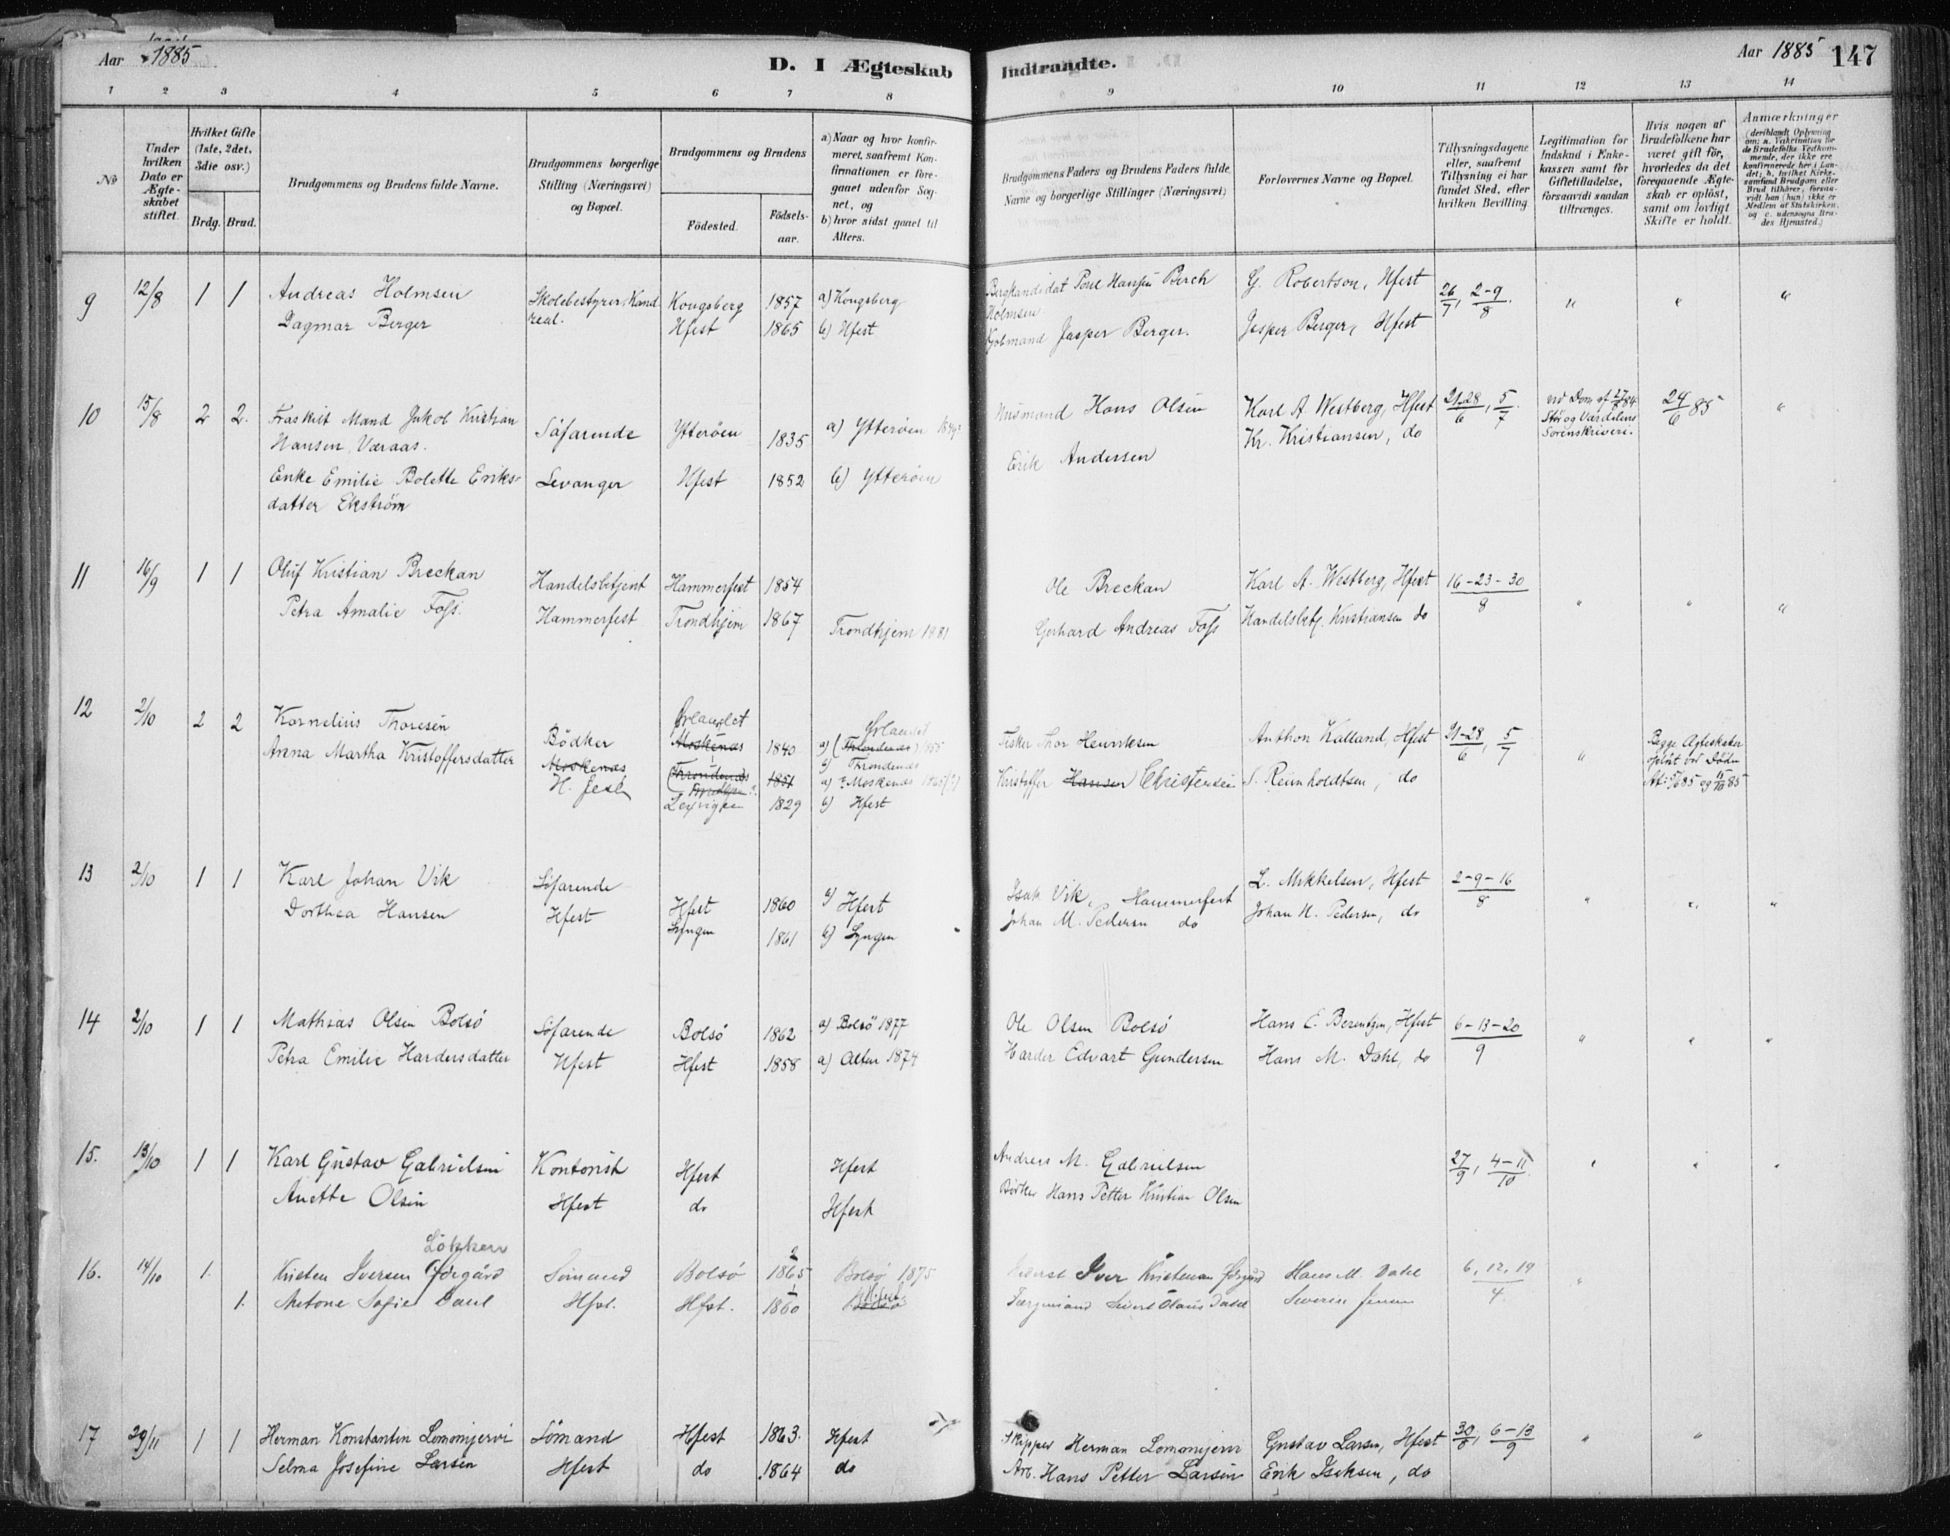 Aar 1885
D. I Ægteskab Indtrandte.
Aar 1885 147
1 2 3 4 5 6 7 8 9 10 11 12 13 14
№
Under hvilken Dato er Ægteskabet stiftet.
Hvilket Gifte (1ste, 2det, 3die osv.)
Brdg. Brud.
Brudgommens og Brudens fulde Navne.
Brudgommens borgerlige Stilling (Næringsvei) og Bopæl.
Brudgommens og Brudens
Fødested.
Fødsels-aar.
a) Naar og hvor konfirmeret, saafremt Konfirmationen er foregaaet udenfor Sognet, og
b) hvor sidst gaaet til Alters.
Brudgommens Faders og Brudens Faders fulde Navne og borgerlige Stillinger (Næringsvei)
Forlovernes Navne og Bopæl.
Tillysningsdagene eller, saafremt Tillysning ei har fundet Sted, efter hvilken Bevilling
Legitimation for Indskud i Enkekassen samt for Giftetilladelse, forsaavidt saadan tiltrænges.
Hvis nogen af Brudefolkene har været gift før, hvorledes da det foregaaende Ægteskab er opløst, samt om lovligt Skifte er holdt.
Anmærkninger
(deriblandt Oplysning om: a. Vakcination for de Brudefolks Vedkommende, der ikke ere konfirmerede her i Landet; b. hvilket Kirkesamfund Brudgom eller Brud tilhører, forsaavidt han (hun) ikke er Medlem af Statskirken, og c. udensogns Brudes Hjemsted.)
9 12/8 1 1 Andreas Holmsen Skolebestyrer, Kand. real. Kongsberg 1857 a) Kongsberg Bergkandidat Poul Hansen Birch Holmsen G. Robertson, Hfest 26/7, 2-9/8 " " "
Dagmar Berger Hfest 1865 b) Hfest Kjøbmand Jasper Berger. Jasper Berger, Hfest
10 15/8 2 2. Fraskilt Mand Jakob Kristian Hansen Varaas. Söfarende Ytterøen 1835 a) Ytterøen Husmand Hans Olsen Karl A. Westberg, Hfest 21.28/6, 5/7. ved Dom af 27/7 84 Stør og Værdalens Sorenskriveri. 24/6 85 "
Enke Emilie Bolette Eriksdatter Ekström Levanger Hfest 1852 b) Ytterøen Erik Andersen Kr. Kristiansen, do
11 16/9 1 1 Oluf Kristian Breckan Handelsbetjent Hammerfest 1854 Ole Breckan Karl A. Westberg, Hfest 16-23-30/8 " " "
Petra Amalie Foss. Hammerfest Trondhjem 1867 Trondhjem 1881 Gerhard Andreas Foss Handelsbetj. Kristiansen do
12 2/10 2 2 Kornelius Thoresen Bödker Ørlandet Moskenæs 1840 a) Ørlandet (Throndenæs) 1855 b) Throndenæs Fisker Thor Henriksen Anthon Kalland, Hfest 21-28/6, 5/7 " Begge Ægteskaber opløst ved Døden
Anna Martha Kristoffersdatter Moskenæs H.fest (Throndenæs Lexvigen 1851 1829 a) Moskenæs b) Hfest Kristoffer Hansen Christensen S. Reinholdtsen, do
13 2/10 1 1 Karl Johan Vik Söfarende Hfest 1860 a) Hfest Isak Vik, Hammerfest L. Mikkelsen, Hfest 2-9-16/8 " " "
Dorthea Hansen Hfest Lyngen 1861 b) Lyngen Johan M. Pedersen do Johan N. Pedersen, do
14 2/10 1 1 Mathias Olsen Bolsö Söfarende Bolsö 1862 a) Bolsö 1877 Ole Olsen Bolsö Hans E. Berentzen, Hfest 6-13-20/9 " " "
Petra Emilie Hardersdatter Hfest Hfest 1858 a) Alten 1874 Harder Edvart Gundersen Hans M. Dahl, do
15. 13/10 1 1 Karl Gustav Gabrielsen Kontorist Hfest Hfest Andreas M. Gabrielsen 27/9, 4-11/10 " " "
Anette Olsen Hfest do Hfest Bødker Hans Petter Kristian Olsen
16. 14/10 1. Kristen Iversen Ødegård Løkken Sömand Bolsö 1865 Bolsö 1875 Iver Kristensen Ødegård Hans M. Dahl 6, 12, 19/4 "
1. Antone Sofie Dahl Hfst. Hfst. 1860 Hfest Færgemand Sivert Olaus Dahl Severin Jensen
17 29/11 1 1 Herman Konstantin Lomomjervi Sömand Hfest 1863. Hfest Skipper Herman Lomomjervi Gustav Larsen, Hfest 30/8, 6-13/9 " "
Selma Josefine Larsen Hfest do 1864 do Arb. Hans Petter Larsen Erik Isaksen, do